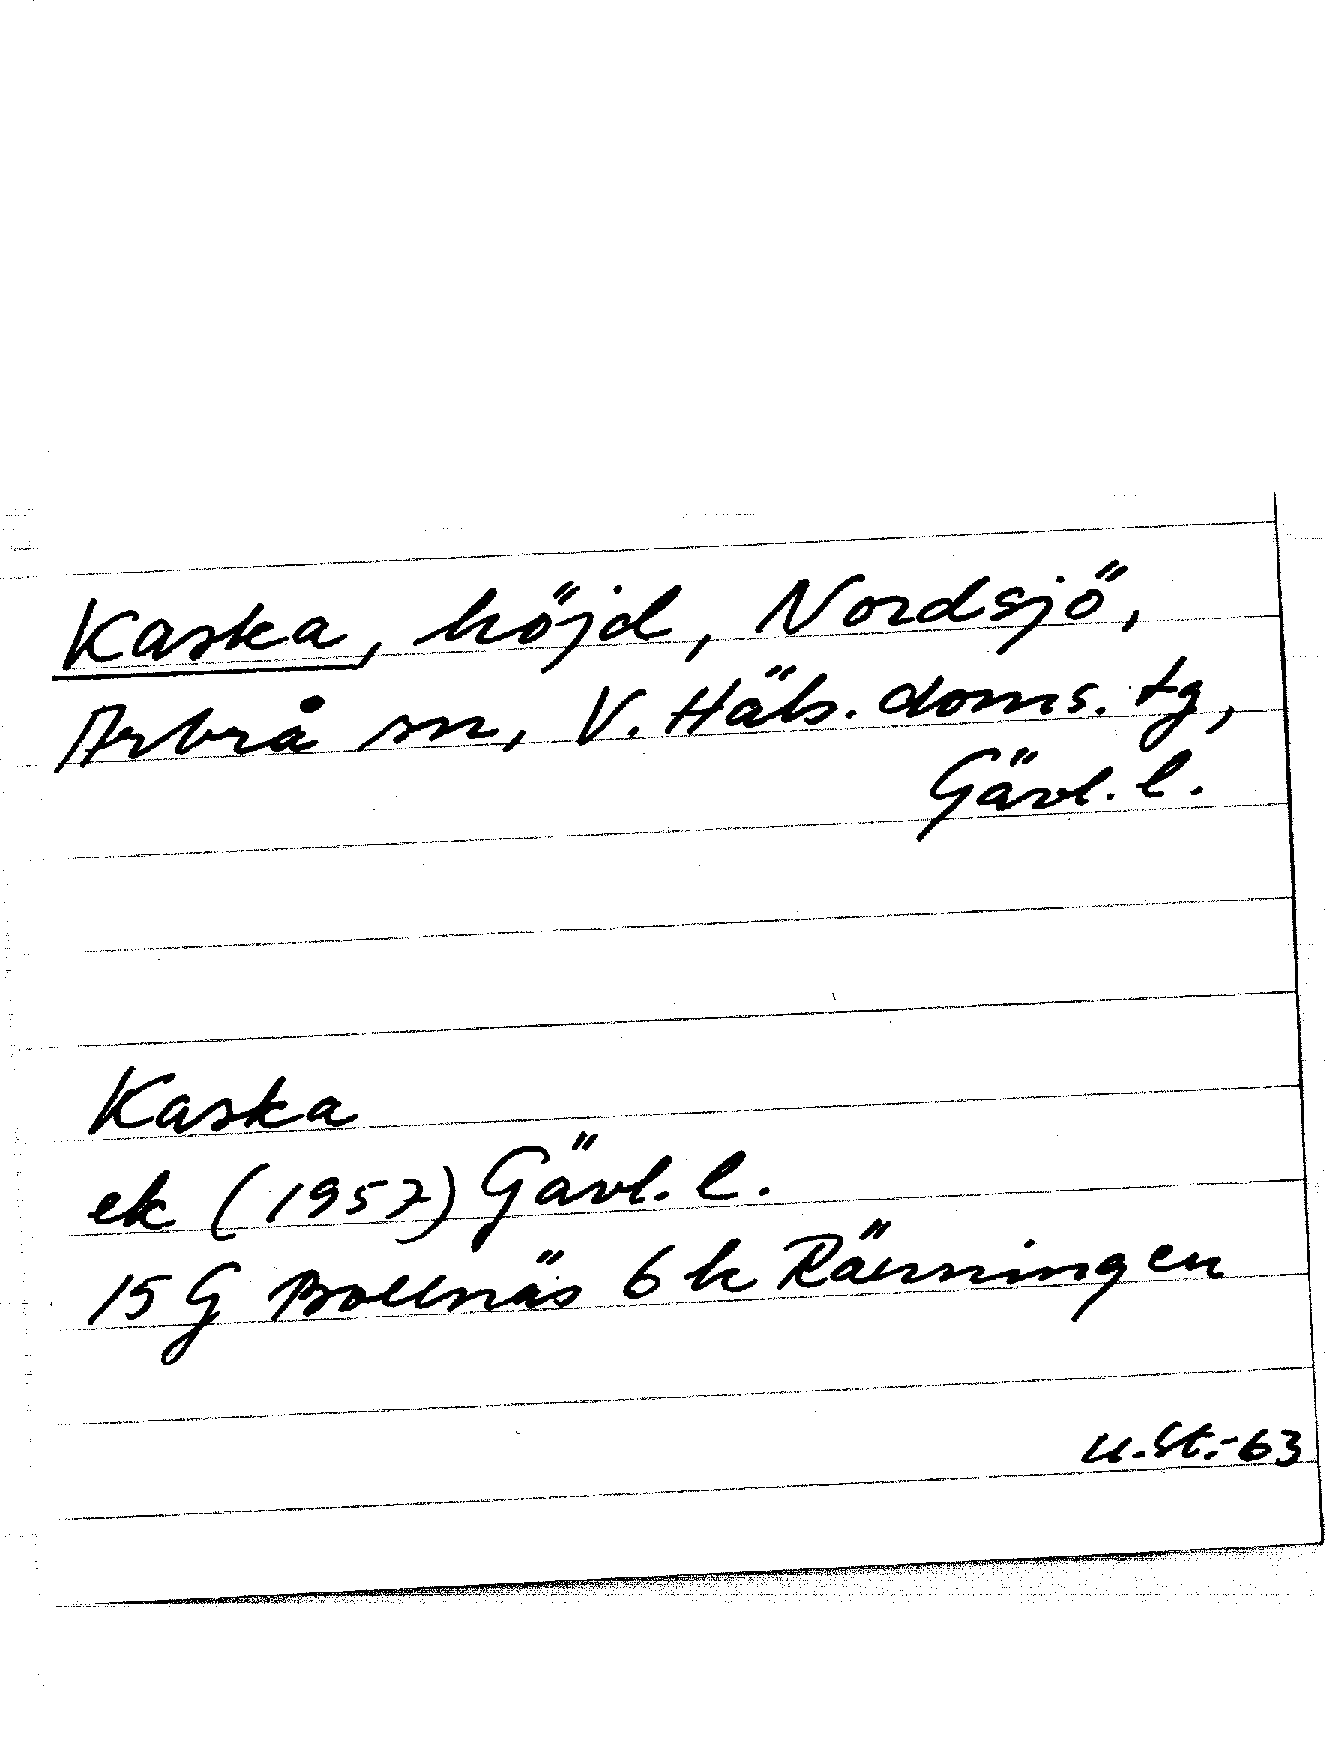 Kaska, höjd, Nordsjö,
Arbrå sn, V. Häls. doms. tg,
Gävl. l.
Kaska
ek (1957) Gävl. l.
15 G Bollnäs 6 h Rävningen
u. St.-63